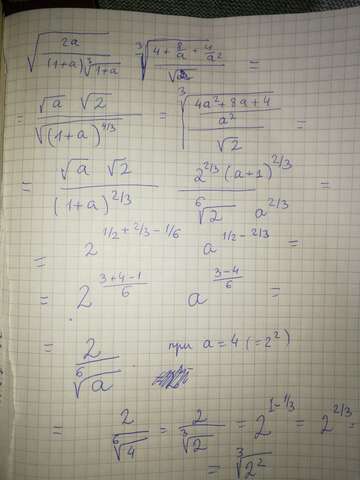 √(2a/((1+a)∛(1+a))) ∛((4 + 8/a + 4/a²)/√2) =
= (√a √2)/√((1+a)^{4/3}) ∛(((4a²+8a+4)/a²)/√2) =
= (√a √2)/(1+a)^{2/3} (2^{2/3}(a+1)^{2/3})/(⁶√2 a^{2/3}) =
= 2^{1/2+2/3-1/6} a^{1/2-2/3} =
= 2^{(3+4-1)/6} a^{(3-4)/6} =
= 2/⁶√a при a=4 (=2²)
= 2/⁶√4 = 2/∛2 = 2^{1-1/3} = 2^{2/3} =
= ∛(2²)